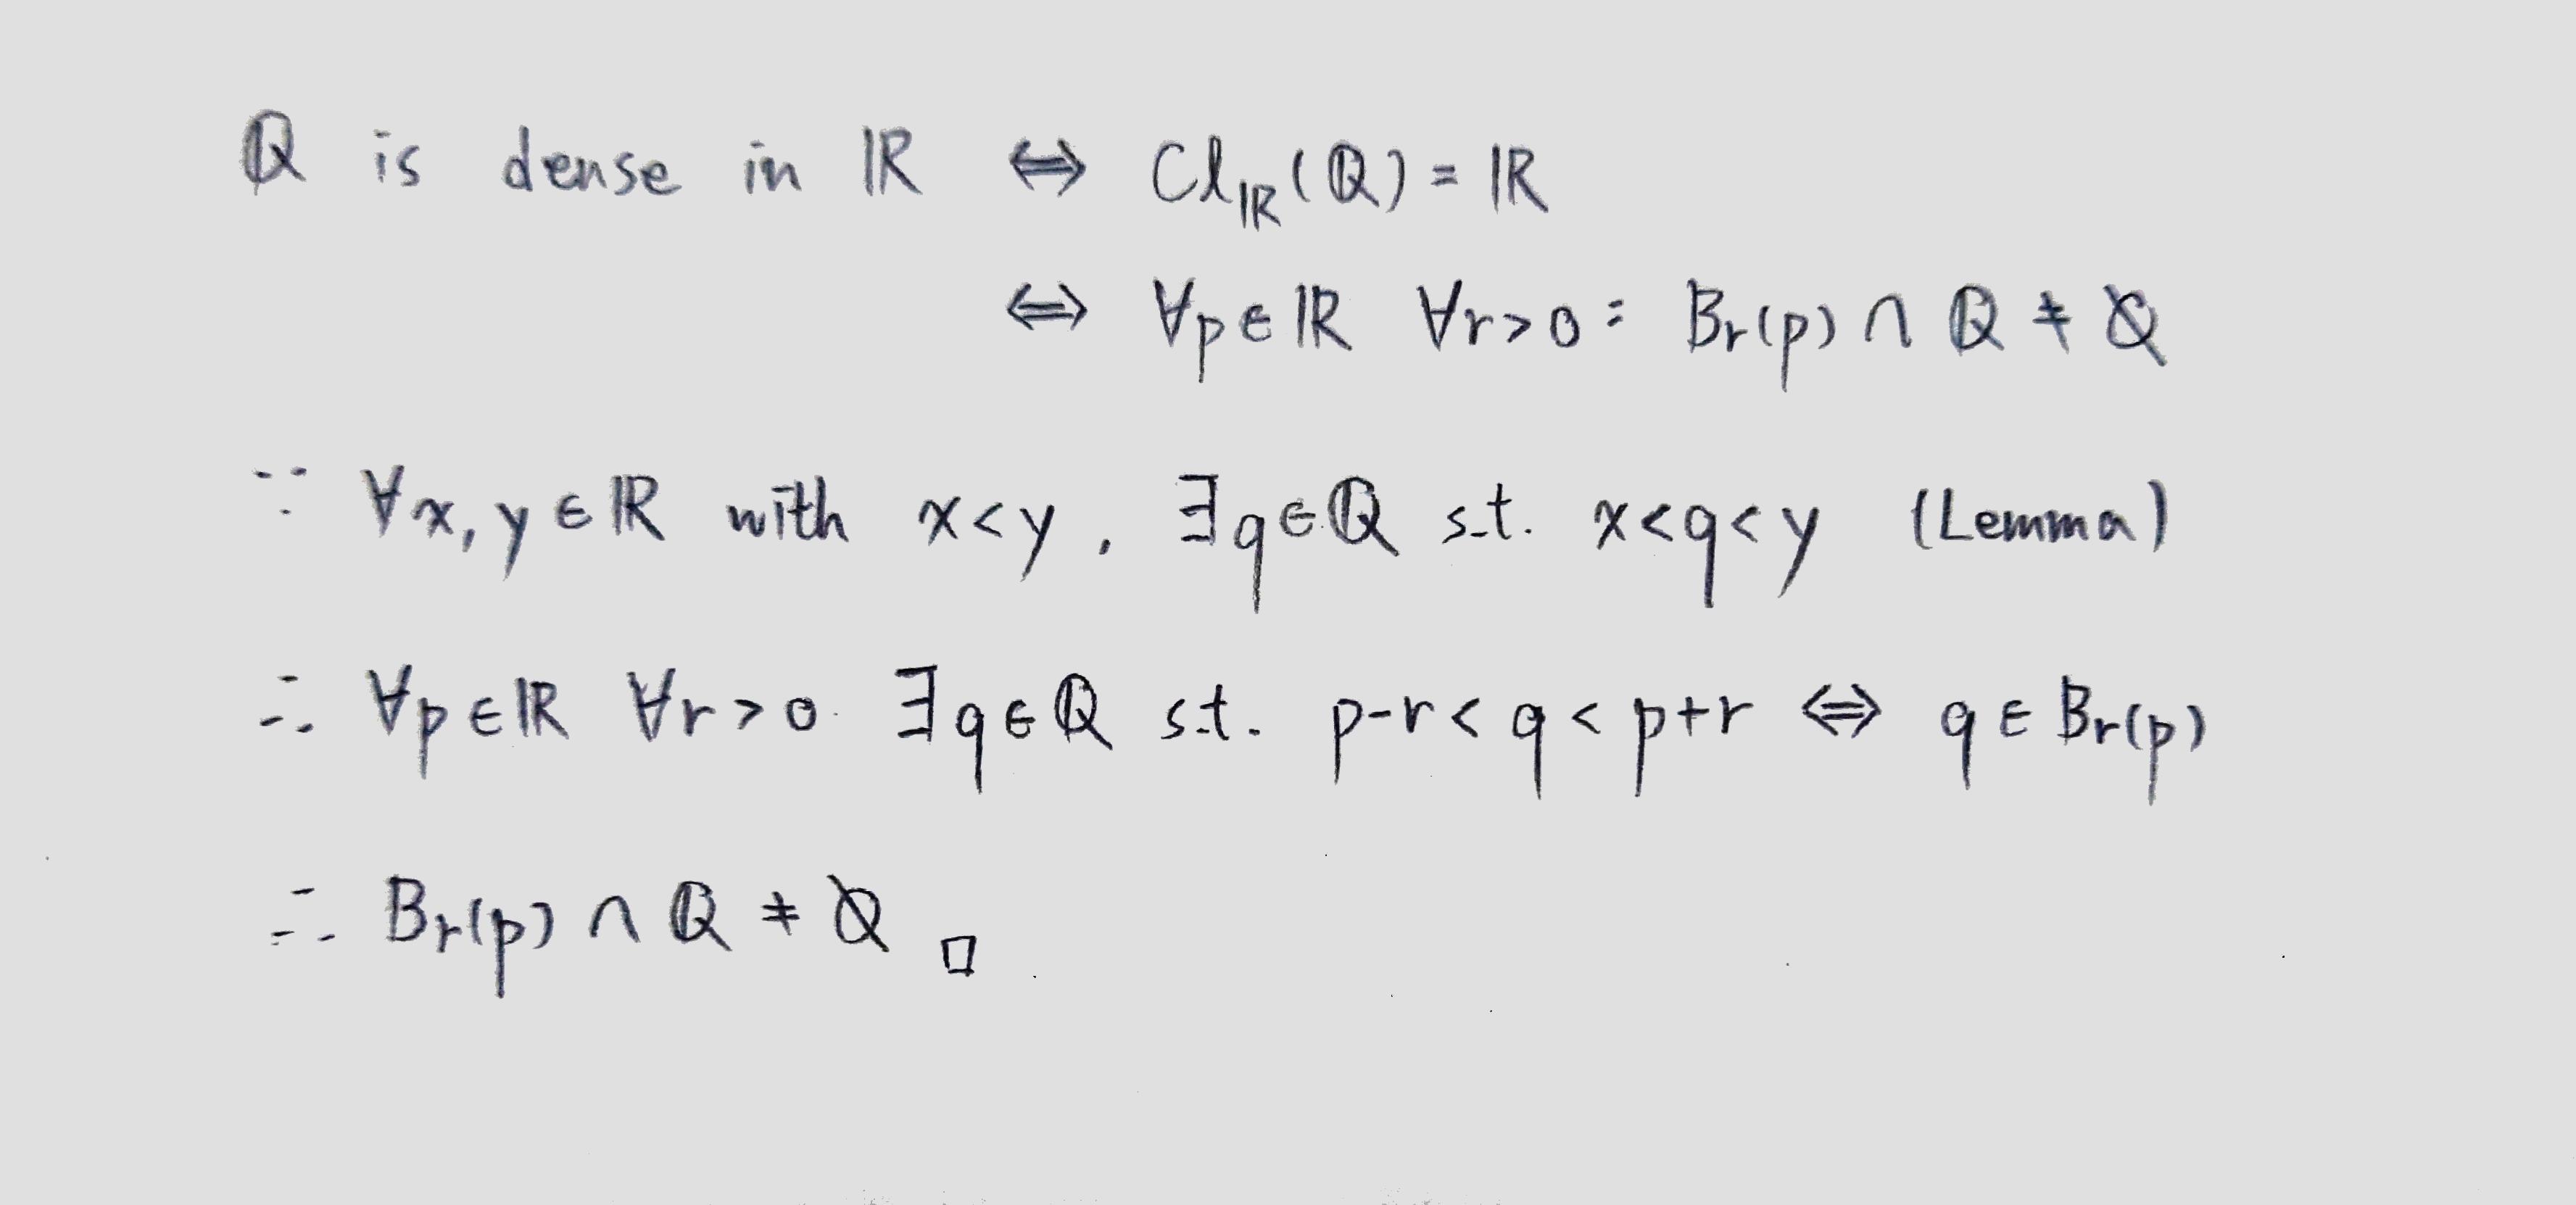 ℚ is dense in ℝ ⇔ Cl_ℝ(ℚ) = ℝ
⇔ ∀p∈ℝ ∀r>0: B_r(p) ∩ ℚ ≠ ∅
∵ ∀x, y ∈ ℝ with x<y, ∃q∈ℚ s.t. x<q<y (Lemma)
∴ ∀p∈ℝ ∀r>0 ∃q∈ℚ s.t. p-r<q<p+r ⇔ q∈B_r(p)
∴ B_r(p) ∩ ℚ ≠ ∅ □